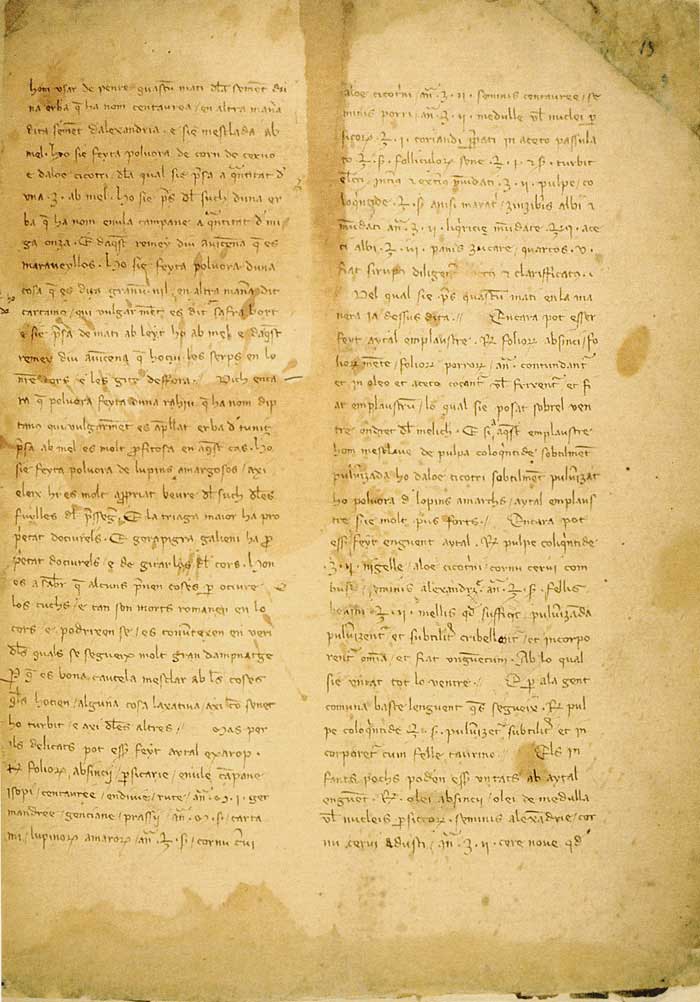 13
hom usar de penre quascun mati dela semença du
na erba q̄ ha nom centaurea / en altra mañra
dita semēt dalexandria . e sie mesclada ab
mel . Ho sie feyta polvora de corn de cervo
e daloe cicotri / dla qual sie p̄sa a q̄ntitat d
una ʒ . ab mel . Ho sie p̄s dl such duna er
ba q̄ ha nom enula campane a q̄ntitat d mi
ga onza . E daq̄st remey diu avicēna q̄ es
maraveyllos . Ho sie feyta polvora duna
cosa q̄ es
en altra mañra dit
cartamo / qui vulgarmēt es dit safra bort
e sie p̄sa de mati ab leyt ho ab mel . e daq̄st
remey diu avicēna q̄ hociu los serps en lo
cors / e les gita deffora . Dich enca
ra q̄ polvora feyta duna rahiu q̄ ha nom dip
tamo qui vulgarmēt es ap̄llat erba d
p̄sa ab mel es molt p̄fitosa en aq̄st cas . Ho
sie feyta polvora de lupins amargosos / axi
eleix hi es molt ap̄priat beure dl such dles
fuylles dl p̄sseg . E la triaga maior ha pro
p̄etat docirels . E gerapigra galieni ha p̄
p̄etat docirels / e de gitarlos dl cors . Hon
es a sabr q̄ alcuns p̄nen coses p̄ ociure
los cuchs / e can son morts romanen en lo
cors / e podrixen se / es cōvtexen en veri
dls quals se segueix molt gran dampnatge
P q̄ es bona cautela mesclar ab les coses
q̄ls hocien / alguna cosa laxativa axi cō senet
ho turbit / e axi dles altres // Mas per
ils delicats pot ess feyt aytal exarop .
R folior absincij / p̄sicarie / enule cāpane
isopi / centauree / endivie / rute / añ . m . i . ger
mandree / genciane / prassij / añ . m . s / carta
mi / lupinor amaror / añ . ℥ . s / cornu c̄vi
aloe cicotri / añ . ʒ . ii . seminis centauree / se
minis porri / añ . ʒ . ii . medulle vl nuclei p̄
sicor . ℥ . ii . coriandi p̄pati in aceto
. ℥ . s . folliculor sene . ℥ . i . & s . turbit
elcti /
. ʒ . ii . pulpe / co
loqintide . ℥ . s anisi marat / zinziberis albi &
mūdati añ . ʒ . ii . liq̄ricie mūdate ℥ ii . ace
ti albi . ℥ . iii . panis zucare / quarcos . v .
fiat sirup̄ diligēt
& clarifficatū .
Del qual sie p̄s quascun mati en la ma
nera ja dessus dita . // Encara pot esser
feyt aytal emplaustre . R folior absinci / fo
lior mēte / folior porror / añ . contundantur
et in oleo et aceto coqantr vl ferventr et fi
at emplaustrū / lo qual sie posat sobrel ven
tre ondret dl melich . E si aq̄st emplaustre
hom mesclave de pulpa coloqintide sobtilmēt
pulvizada ho daloe cicotri sobtilmēt pulvizat
ho polvora d lopins amarchs / aytal emplaus
tre sie molt pus forts . // Encara pot
ess feyt enguent aytal . R pulpe coliq̄ntide
. ʒ . ii . nigelle / aloe cicotri / cornu cervi com
busti / seminis alexandrz . añ . ℥ . s . fellis
bovini . ℥ . ii . mellis qd sufficit / pulvizāda
pulvizentr et subtilitr cribellentr / et incorpo
rentr omīa / et fiat unguentum . Ab lo qual
sie untat tot lo ventre . // E p̄ ala gent
comuna baste lenguent q̄s segueix . R pul
pe coloqintide ℥ . s . pulvizetr subtilitr et in
corporetr cum felle taurino . // Els in
fants pochs poden ess untats ab aytal
enguēt . R . olei absincii / olei de medulla
vl nucleis p̄sicor . seminis alexādrie / cor
nu cervi adusti / añ . ʒ . ii . cere nove qd